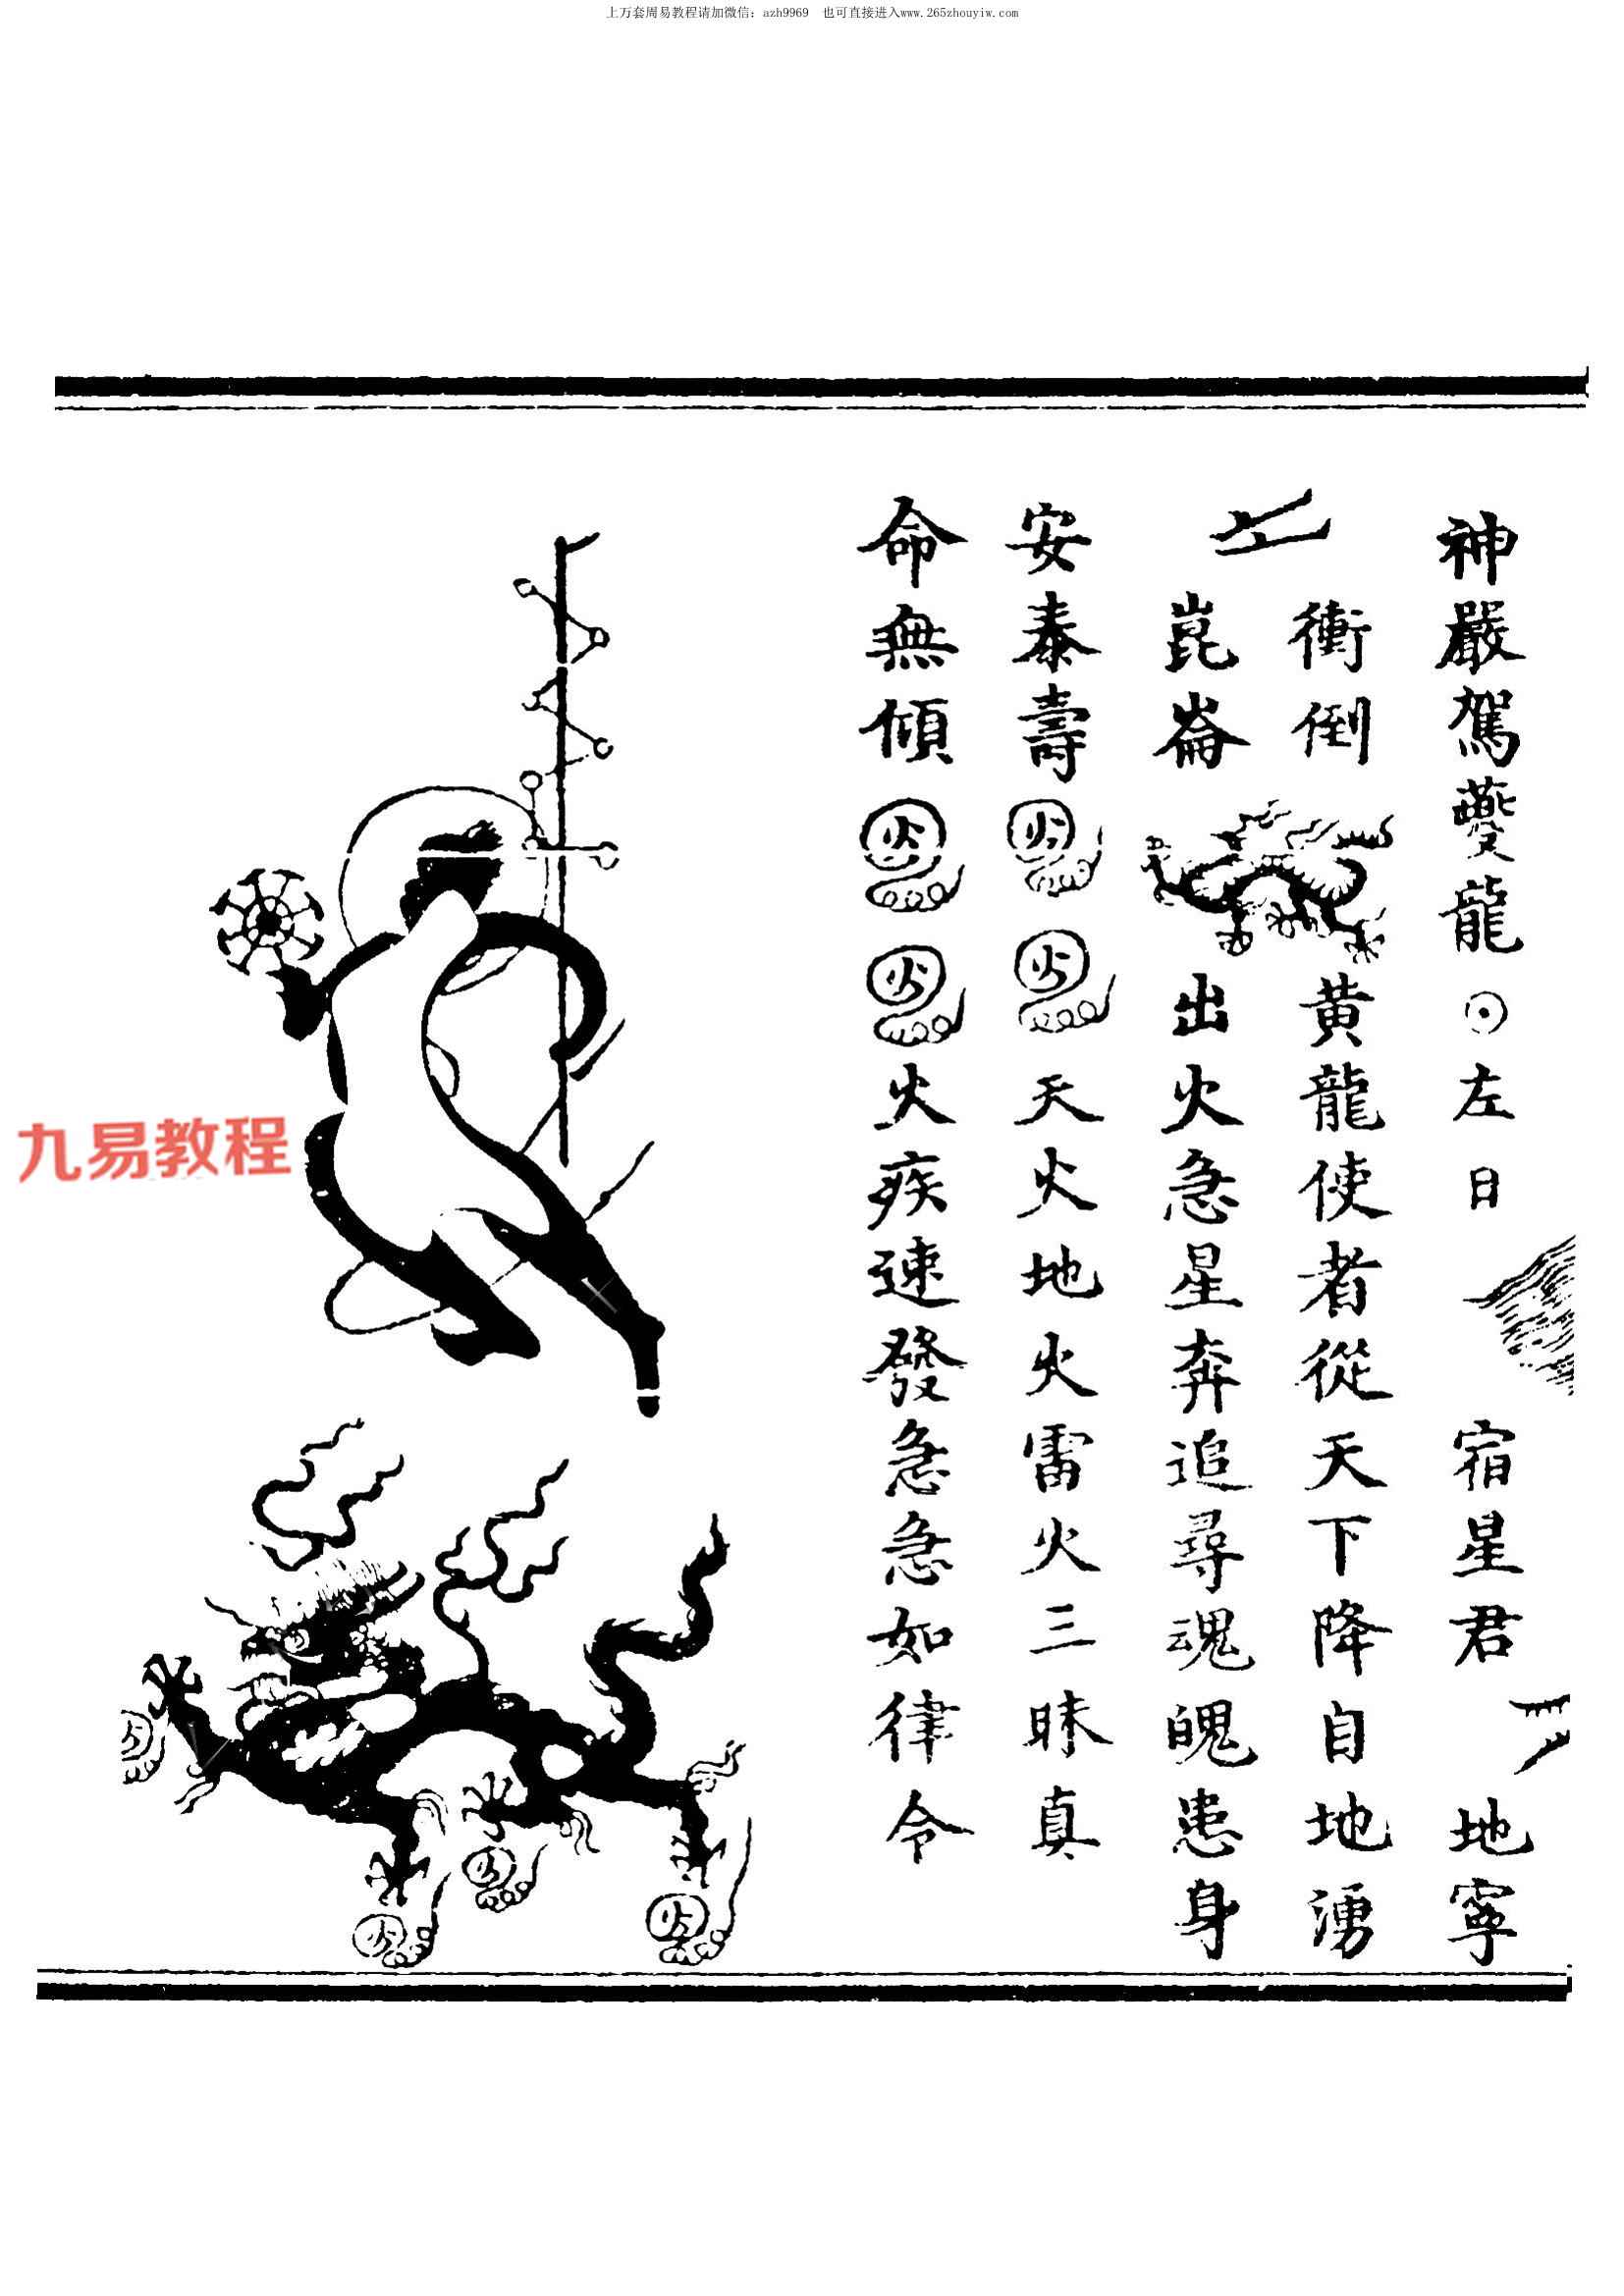 上万套周易教程请加微信：azh9969 也可直接进入www.265zhouyiw.com
神嚴駕夔龍左日宿星君地寧
衝倒黄龍使者從天下降自地湧
崑崙出火急星奔追尋魂魄患身
安泰壽火火天火地火雷火三昧真
命無傾火火火疾速發急急如律令
九易教程
火
火
火
火